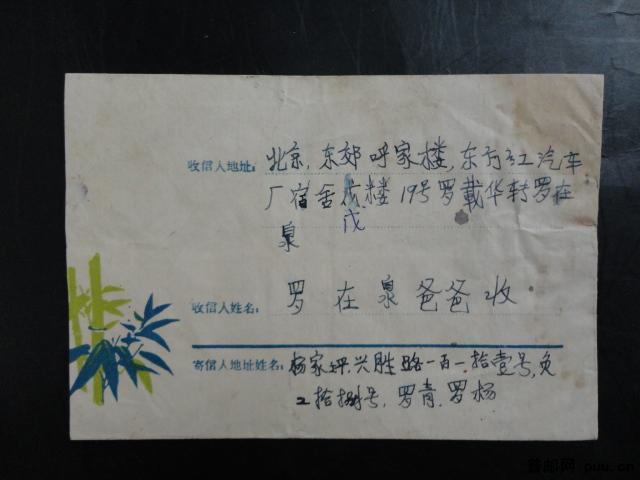 收信人地址: 北京,东郊呼家楼,东方红汽车
厂宿舍戊楼19号罗载华转罗在
戊
泉
收信人姓名: 罗在泉爸爸收
寄信人地址姓名: 杨家坪兴胜路一百一拾壹号,负
2拾捌号.罗青.罗杨
首邮网 puu.cn